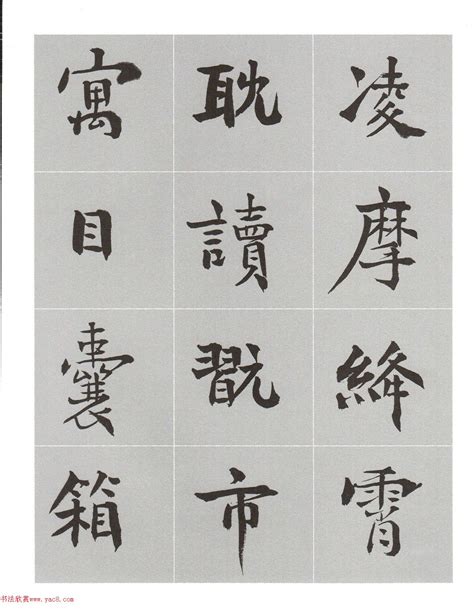 凌摩絳霄
耽讀翫市
寓目囊箱
书法欣赏www.yac8.com